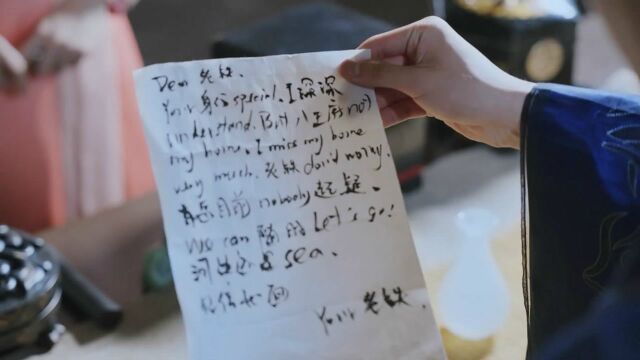 Dear 老铁、
Your 身份 special、I 深深
understand. But 八王府 not
my home. I miss my home
very much. 老铁 don't worry.
目前 nobody 起疑、
We can 随时 Let's go!
河山 sea、
见信如面
Your 老铁、